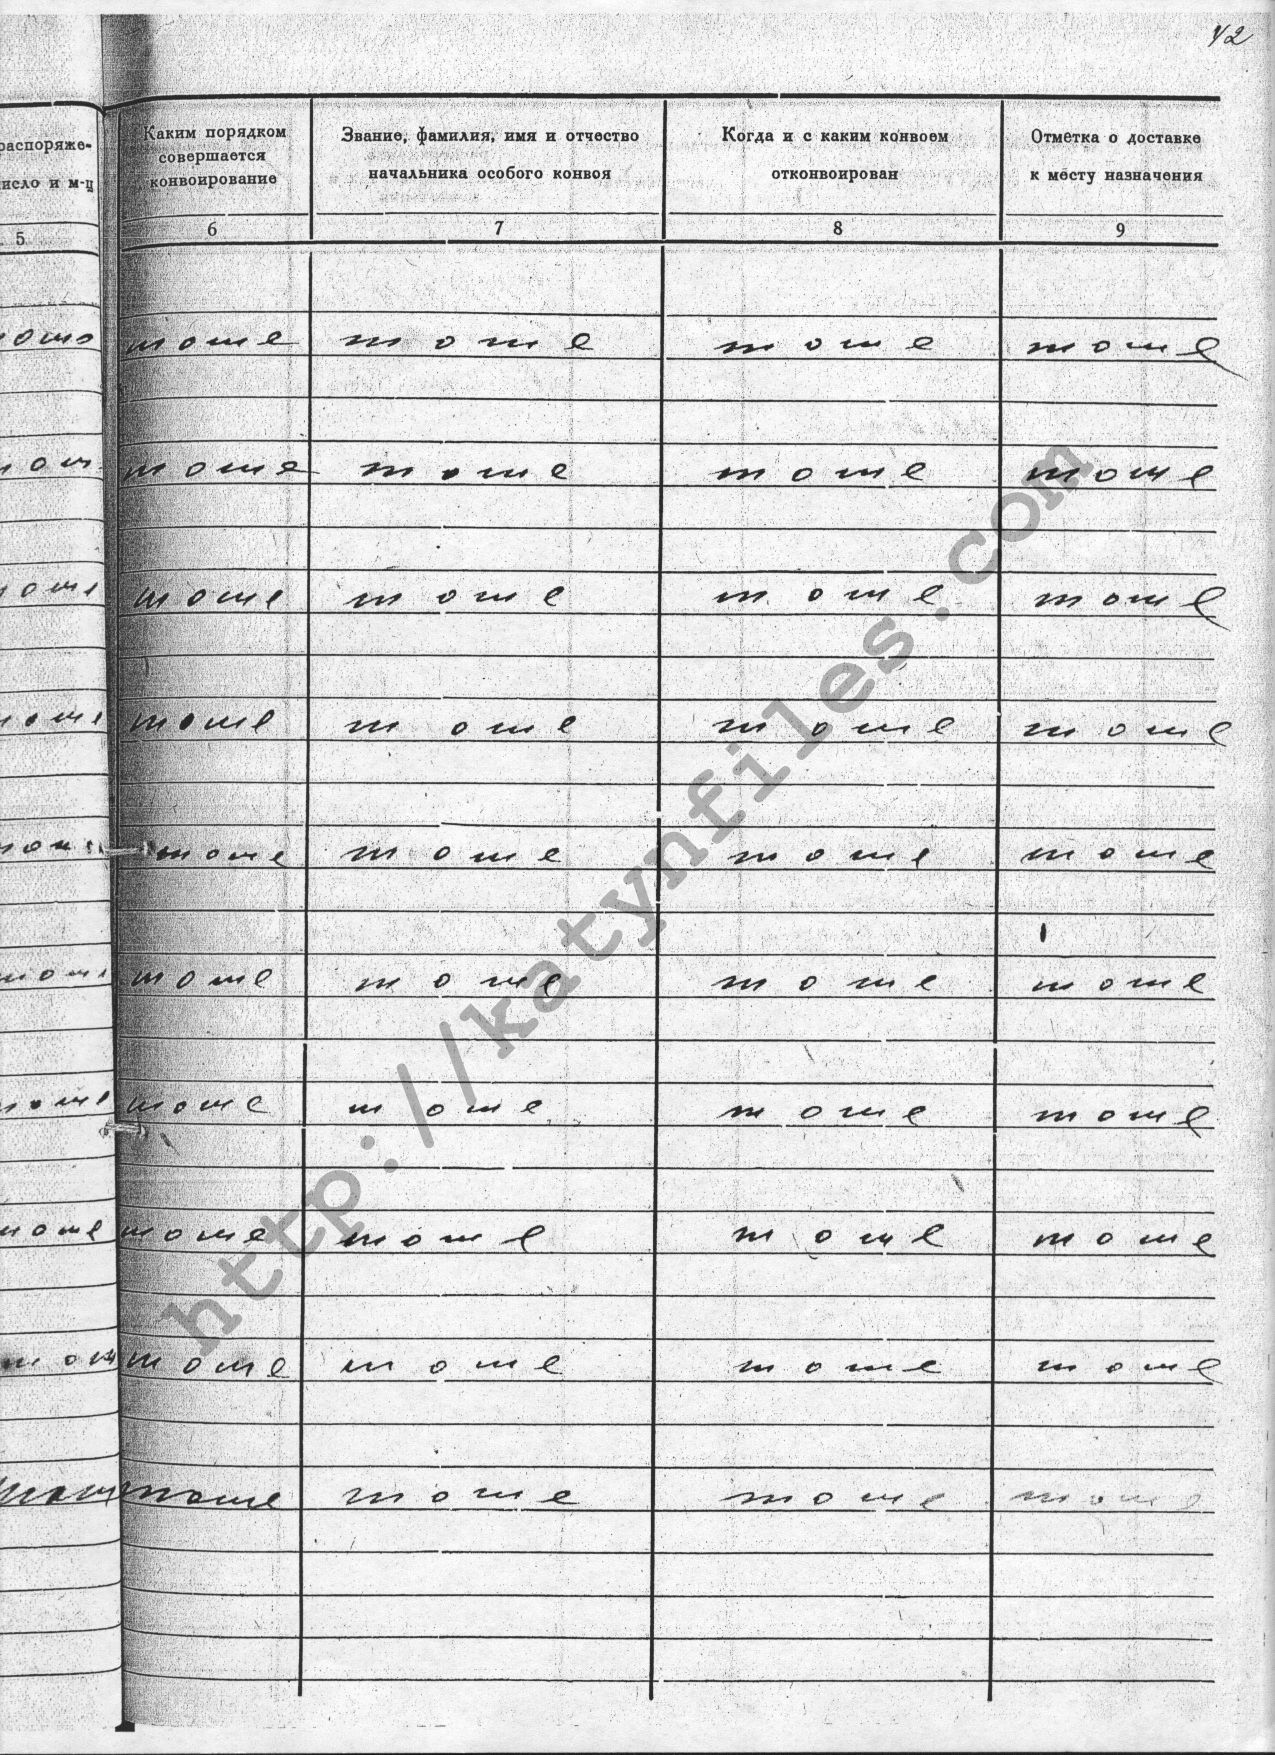 42
распоряже-
число и м-ц
5
Каким порядком
совершается
конвоирование
6
Звание, фамилия, имя и отчество
начальника особого конвоя
7
Когда и с каким конвоем
отконвоирован
8
Отметка о доставке
к месту назначения
9
тоже тоже тоже тоже
тоже тоже тоже тоже
тоже тоже тоже тоже
тоже тоже тоже тоже
тоже тоже тоже тоже
тоже тоже тоже тоже
тоже тоже тоже тоже
тоже тоже тоже тоже тоже
тоже тоже тоже тоже
тоже тоже тоже тоже
http://katynfiles.com